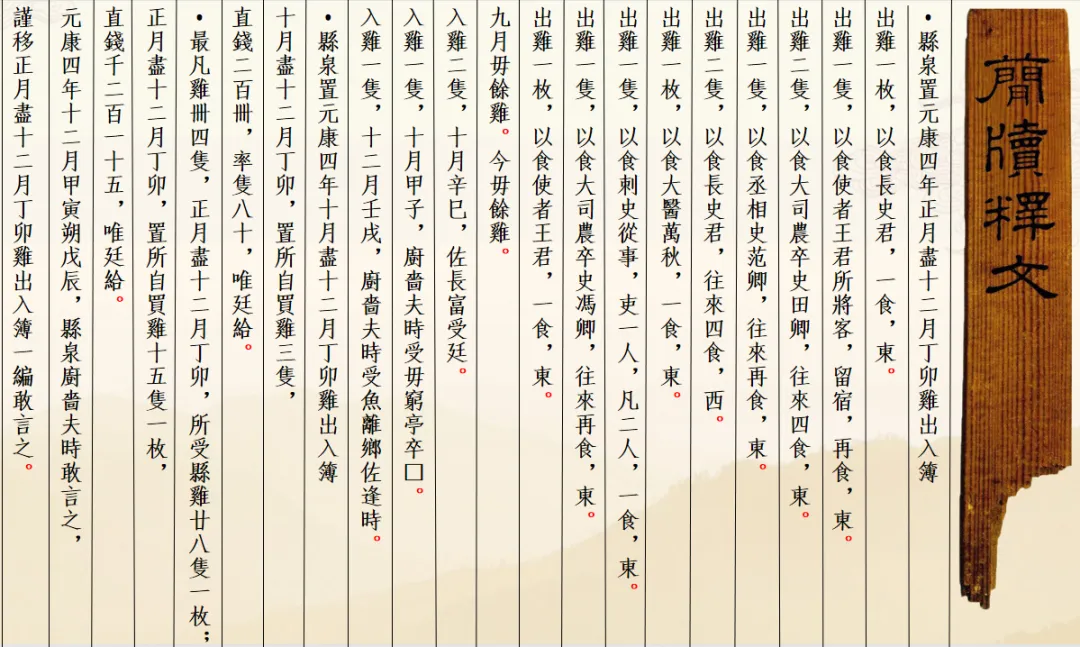 簡牘釋文
•縣泉置元康四年正月盡十二月丁卯雞出入簿
出雞一枚，以食長史君，一食，東。
出雞一隻，以食使者王君所將客，留宿，再食，東。
出雞二隻，以食大司農卒史田卿，往來四食，東。
出雞一隻，以食丞相史范卿，往來再食，東。
出雞二隻，以食長史君，往來四食，西。
出雞一枚，以食大醫萬秋，一食，東。
出雞一隻，以食刺史從事，吏一人，凡二人，一食，東。
出雞一隻，以食大司農卒史馮卿，往來再食，東。
出雞一枚，以食使者王君，一食，東。
九月毋餘雞。今毋餘雞。
入雞二隻，十月辛巳，佐長富受廷。
入雞一隻，十月甲子，廚嗇夫時受毋窮亭卒□。
入雞一隻，十二月壬戌，廚嗇夫時受魚離鄉佐逢時。
•縣泉置元康四年十月盡十二月丁卯雞出入簿
十月盡十二月丁卯，置所自買雞三隻，
直錢二百卌，率隻八十，唯廷給。
•最凡雞卌四隻，正月盡十二月丁卯，所受縣雞廿八隻一枚；
正月盡十二月丁卯，置所自買雞十五隻一枚，
直錢千二百一十五，唯廷給。
元康四年十二月甲寅朔戊辰，縣泉廚嗇夫時敢言之，
謹移正月盡十二月丁卯雞出入簿一編敢言之。